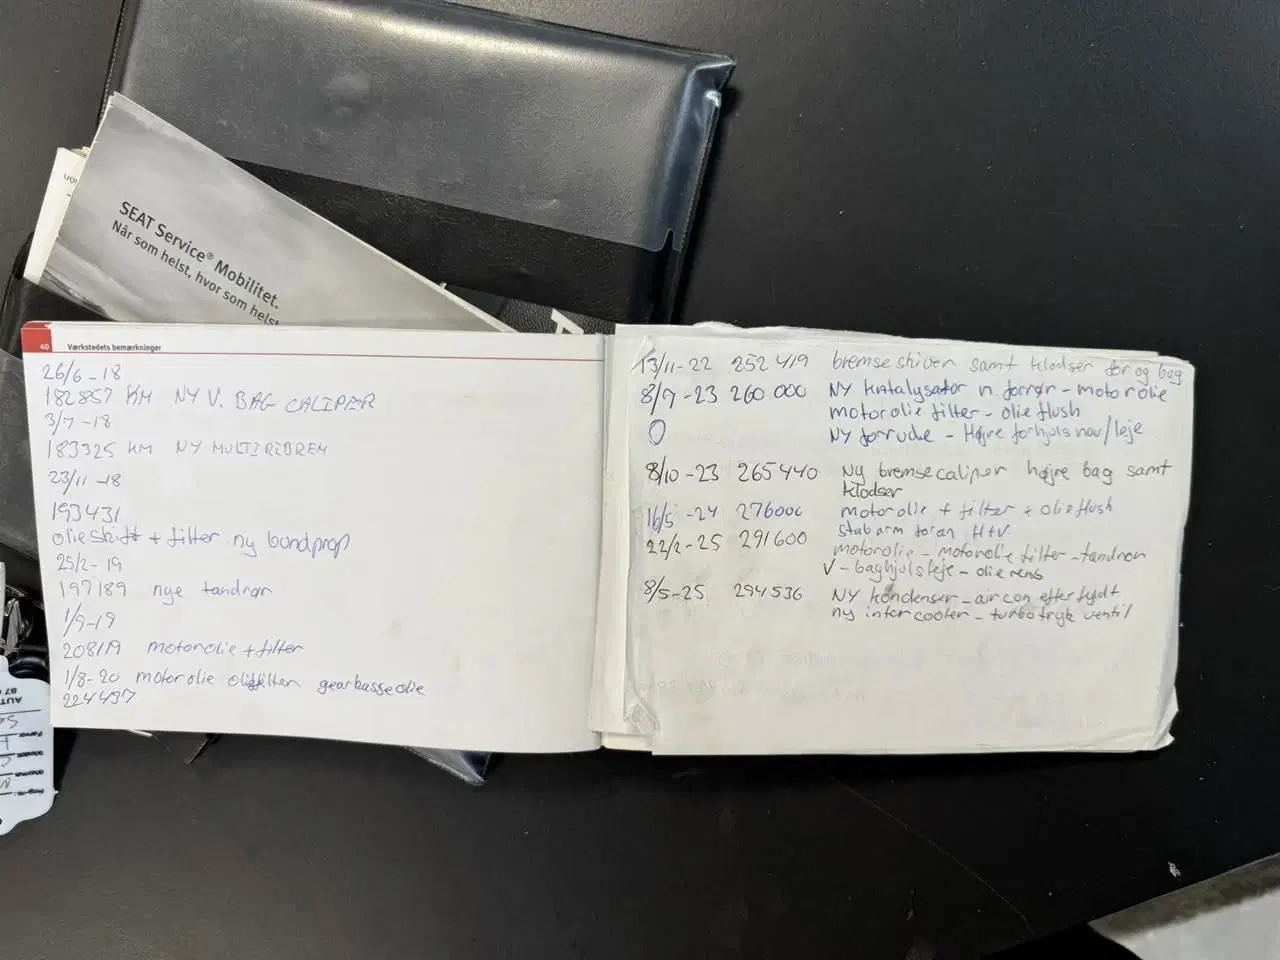 SEAT Service® Mobilitet.
Når som helst, hvor som helst
40 Værkstedets bemærkninger
26/6-18
182857 KM NY V. BAG CALIPER
3/7-18
183325 KM NY MULTIRIBREM
23/11-18
193431
olieskift + filter ny bundprop
25/2-19
197189 nye tandrør
1/9-19
208119 motorolie + filter
1/8-20 motorolie oliefilter gearkasseolie
224497
13/11-22 252419 bremseskiver samt klodser for og bag
8/9-23 260 000 NY katalysator m. forrør - motorolie
motorolie filter - olie flush
NY forrude - Højre forhjuls nav/leje
8/10-23 265440 Ny bremsecaliper højre bag samt
klodser
16/5-24 276000 motorolie + filter + olieflush
stabarm foran H+V.
22/2-25 291600 motorolie - motorolie filter - tandrem
V - baghjulsleje - olierens
8/5-25 294536 NY kondenser - aircon efterfyldt
ny intercooler - turbotryk ventil